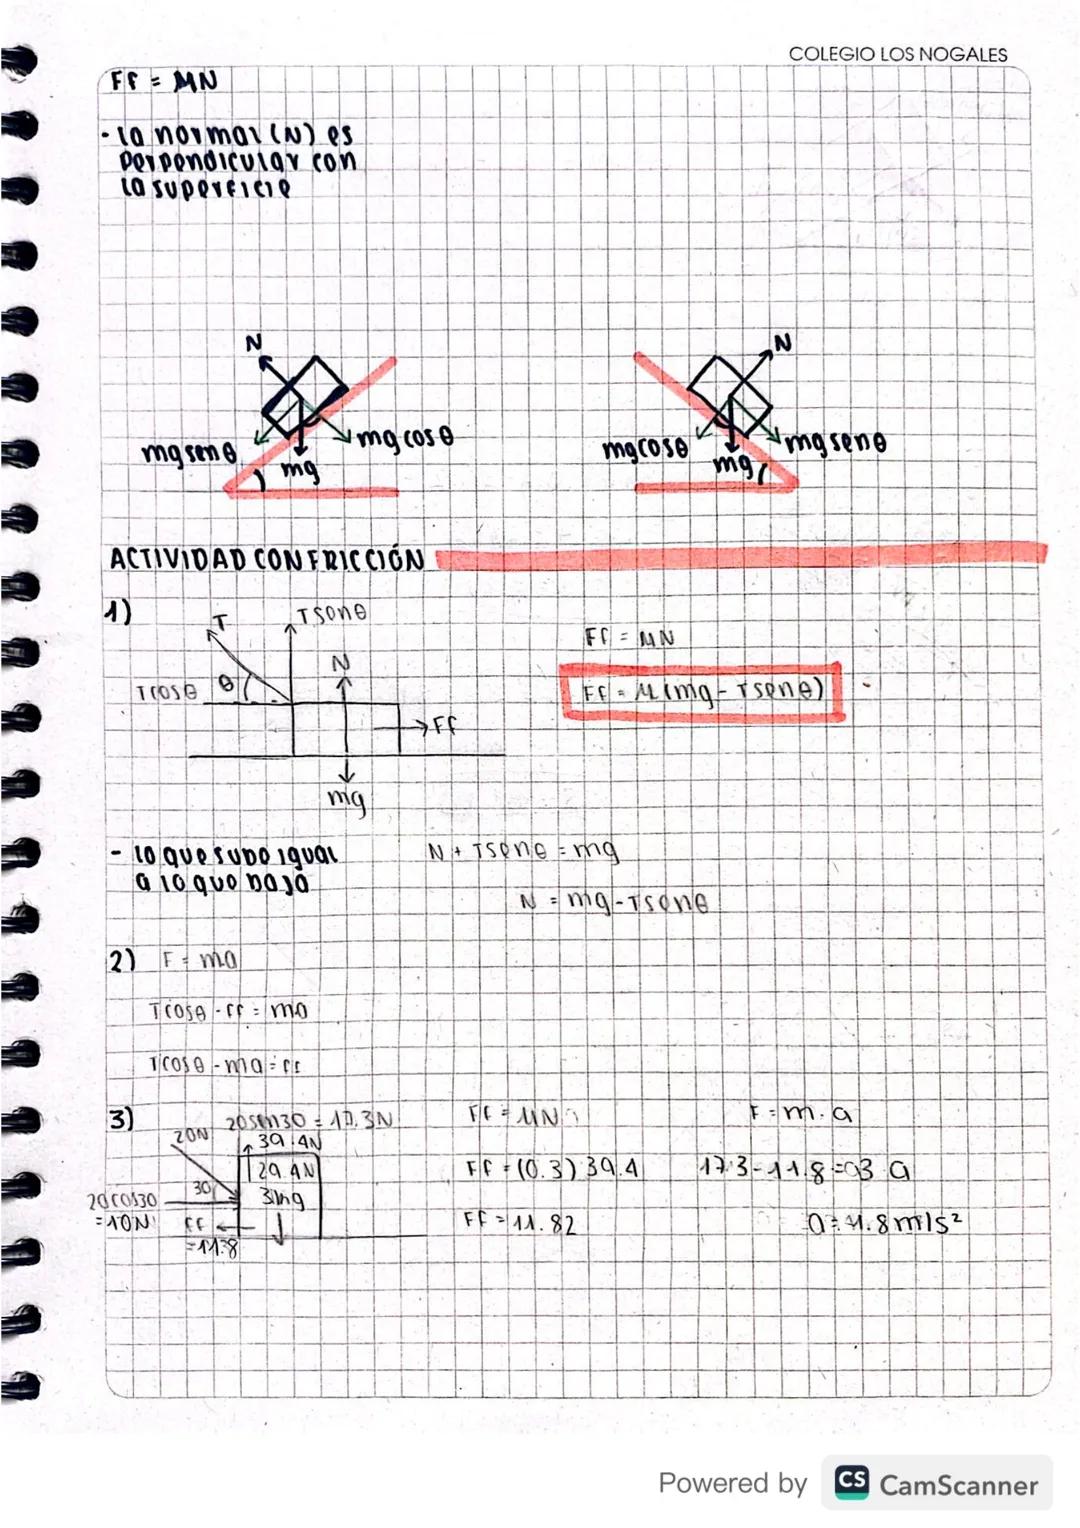 COLEGIO LOS NOGALES
Ff = MN
- la normal (N) es
perpendicular con
la superficie
N
mg sen θ
mg
mg cos θ
N
mg cos θ
mg
mg sen θ
ACTIVIDAD CON FRICCIÓN
1)
T
T sen θ
T cos θ
θ
N
Ff
mg
Ff = MN
Ff = M (mg - T sen θ)
- lo que sube igual
a lo que baja
N + T sen θ = mg
N = mg - T sen θ
2) F = ma
T cos θ - Ff = ma
T cos θ - ma = Ff
3)
20 sen 30 = 17.3N
20N
39.4N
29.4N
30
3kg
20 cos 30
= 10N
Ff
= 11.8
Ff = MN
Ff = (0.3) 39.4
Ff = 11.82
F = m . a
17.3 - 11.8 = 3 a
a = 1.8 m/s²
Powered by CS CamScanner